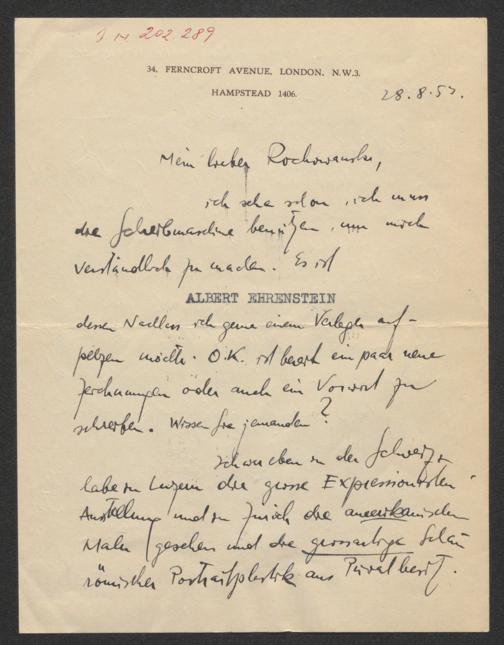 I N 202.289
34, FERNCROFT AVENUE, LONDON, N.W.3.
HAMPSTEAD 1406.
28.8.53.
Mein lieber Rochowanski,
ich sehe schon, ich muss
die Schreibmaschine benützen, um mich
verständlich zu machen. Es ist
ALBERT EHRENSTEIN
dessen Nachlass ich gerne einem Verleger auf-
pelzen möcht. O.K. ist bereit ein paar neue
Zeichnungen oder auch ein Vorwort zu
schreiben. Wissen Sie jemanden?
Ich war eben in der Schweiz,
habe in Luzern die grosse Expressionisten
Ausstellung und in Zürich die amerikanischen
Maler gesehen und die grossartige Schau
römischer Portraitplastik aus Privatbesitz.